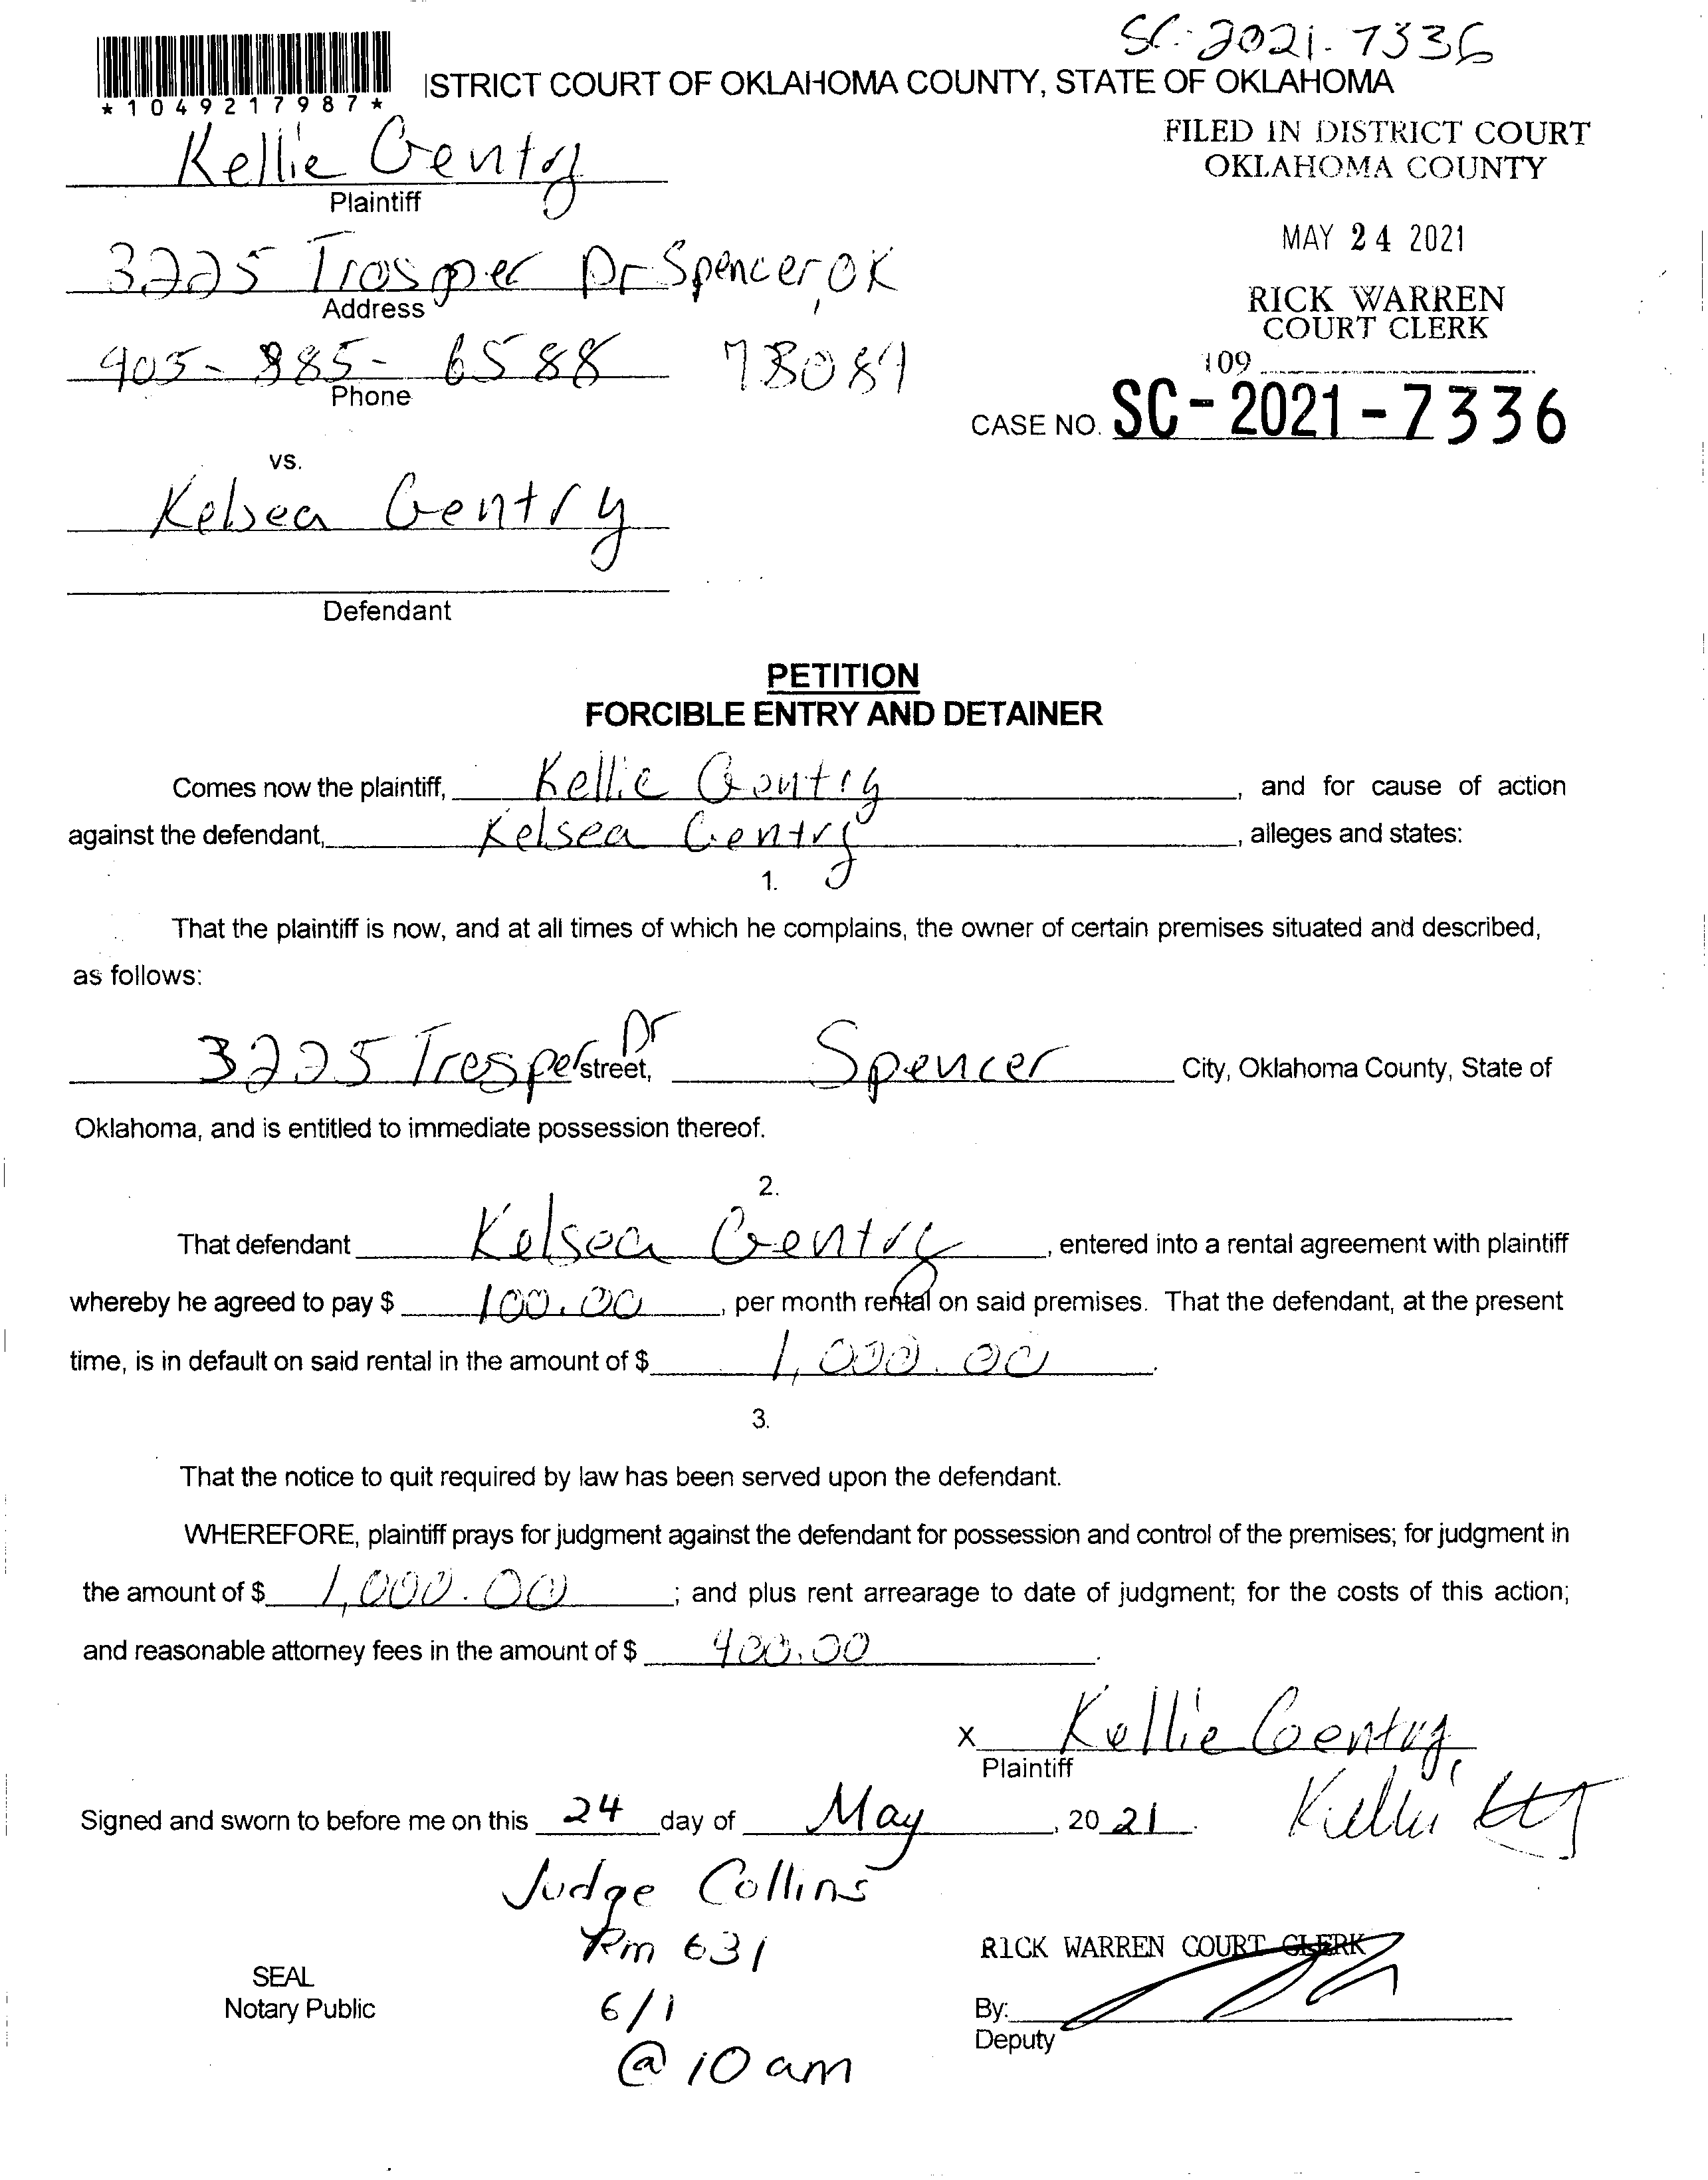 SC-2021-7336
*1049217987*
ISTRICT COURT OF OKLAHOMA COUNTY, STATE OF OKLAHOMA
FILED IN DISTRICT COURT
OKLAHOMA COUNTY
Kellie Gentry
Plaintiff
MAY 24 2021
3225 Trosper Dr Spencer, OK
Address
RICK WARREN
COURT CLERK
405-885-6588 73084
Phone
109
CASE NO. SC-2021-7336
vs.
Kelsea Gentry
Defendant
PETITION
FORCIBLE ENTRY AND DETAINER
Comes now the plaintiff, Kellie Gentry, and for cause of action
against the defendant, Kelsea Gentry, alleges and states:
1.
That the plaintiff is now, and at all times of which he complains, the owner of certain premises situated and described,
as follows:
3225 Trosper Dr street, Spencer City, Oklahoma County, State of
Oklahoma, and is entitled to immediate possession thereof.
2.
That defendant Kelsea Gentry, entered into a rental agreement with plaintiff
whereby he agreed to pay $ 100.00, per month rental on said premises. That the defendant, at the present
time, is in default on said rental in the amount of $ 1,000.00.
3.
That the notice to quit required by law has been served upon the defendant.
WHEREFORE, plaintiff prays for judgment against the defendant for possession and control of the premises; for judgment in
the amount of $ 1,000.00; and plus rent arrearage to date of judgment; for the costs of this action;
and reasonable attorney fees in the amount of $ 400.00.
X Kellie Gentry
Plaintiff
Signed and sworn to before me on this 24 day of May, 2021.
Judge Collins
Rm 631
RICK WARREN COURT CLERK
SEAL
Notary Public
6/1
By:
Deputy
@ 10 am